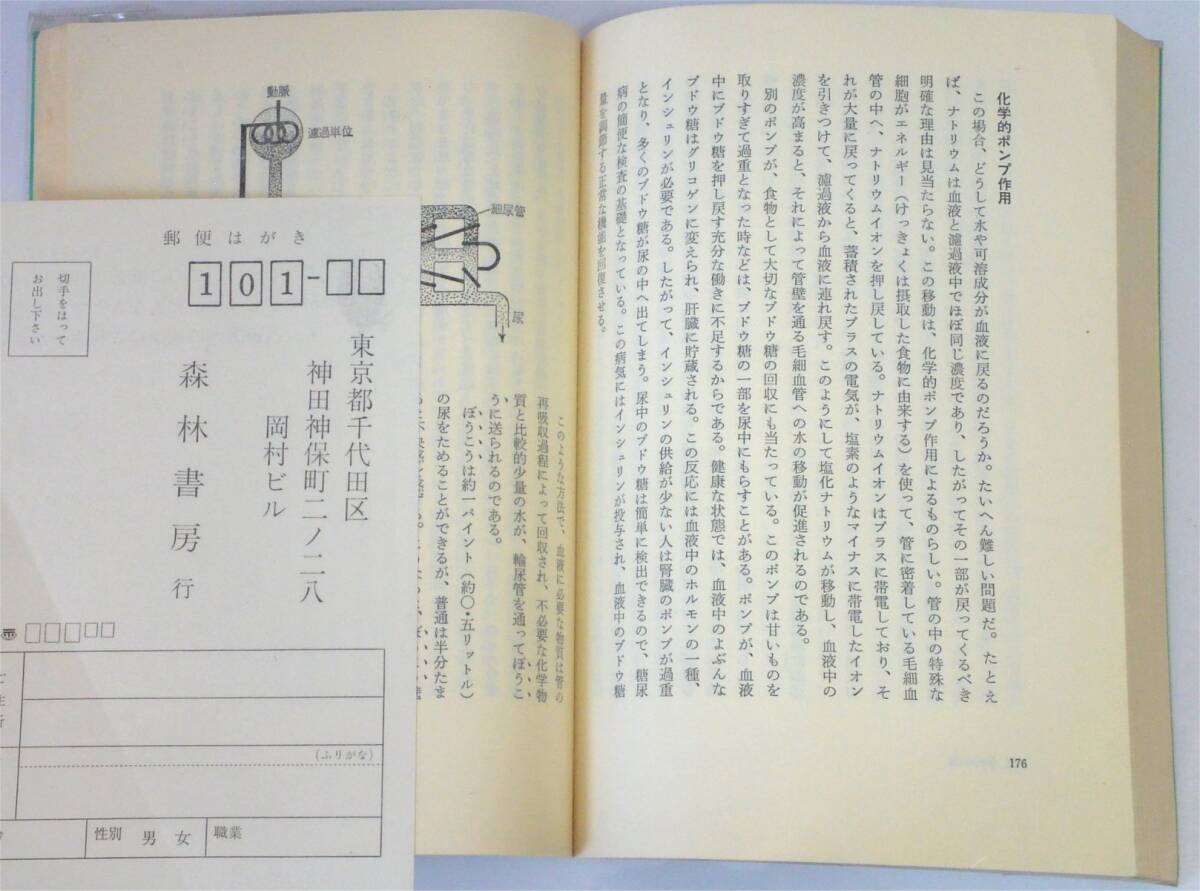 化学的ポンプ作用
この場合、どうして水や可溶成分が血液に戻るのだろうか。たいへん難しい問題だ。たとえ
ば、ナトリウムは血液と濾過液中でほぼ同じ濃度であり、したがってその一部が戻ってくるべき
明確な理由は見当たらない。この移動は、化学的ポンプ作用によるものらしい。管の中の特殊な
細胞がエネルギー（けっきょくは摂取した食物に由来する）を使って、管に密着している毛細血
管の中へ、ナトリウムイオンを押し戻している。ナトリウムイオンはプラスに帯電しており、そ
れが大量に戻ってくると、蓄積されたプラスの電気が、塩素のようなマイナスに帯電したイオン
を引きつけて、濾過液から血液に連れ戻す。このようにして塩化ナトリウムが移動し、血液中の
濃度が高まると、それによって管壁を通る毛細血管への水の移動が促進されるのである。
別のポンプが、食物として大切なブドウ糖の回収にも当たっている。このポンプは甘いものを
取りすぎて過重となった時などは、ブドウ糖の一部を尿中にもらすことがある。ポンプが、血液
中にブドウ糖を押し戻す充分な働きに不足するからである。健康な状態では、血液中のよぶんな
ブドウ糖はグリコゲンに変えられ、肝臓に貯蔵される。この反応には血液中のホルモンの一種、
インシュリンが必要である。したがって、インシュリンの供給が少ない人は腎臓のポンプが過重
となり、多くのブドウ糖が尿の中へ出てしまう。尿中のブドウ糖は簡単に検出できるので、糖尿
病の簡便な検査の基礎となっている。この病気にはインシュリンが投与され、血液中のブドウ糖
量を調節する正常な機能を回復させる。
176
動脈
濾過単位
細尿管
尿
このような方法で、血液に必要な物質は管の
再吸収過程によって回収され、不必要な化学物
質と比較的少量の水が、輸尿管を通ってぼうこ
うに送られるのである。
ぼうこうは約一パイント（約〇・五リットル）
の尿をためることができるが、普通は半分たま
郵便はがき
101-
切手をはって
お出し下さい
東京都千代田区
神田神保町二ノ二八
岡村ビル
森林書房 行
(ふりがな)
性別 男 女 職業